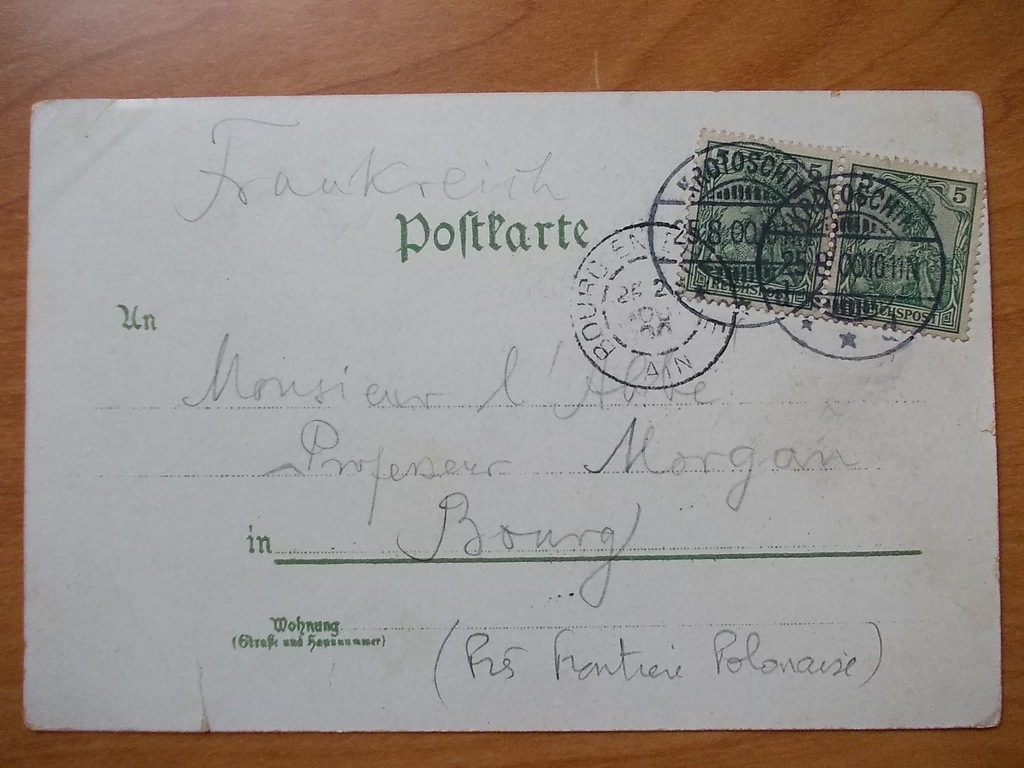 Frankreich
Postkarte
5
5
REICHSPOST
REICHSPOST
KROTOSCHIN
25.8.00.10-11N
KROTOSCHIN
25.8.00.10-11N
BOURG EN
25
00
AIN
An
Monsieur l'Abbé
Professeur Morgan
in Bourg
Wohnung
(Straße und Hausnummer)
(Prés Frontiere Polonaise)